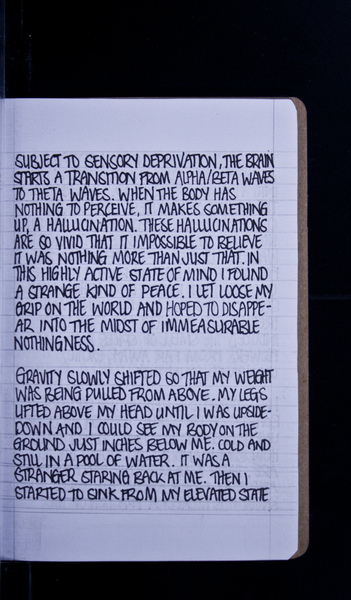 SUBJECT TO SENSORY DEPRIVATION, THE BRAIN
STARTS A TRANSITION FROM ALPHA/BETA WAVES
TO THETA WAVES. WHEN THE BODY HAS
NOTHING TO PERCEIVE, IT MAKES SOMETHING
UP, A HALLUCINATION. THESE HALLUCINATIONS
ARE SO VIVID THAT IT IMPOSSIBLE TO BELIEVE
IT WAS NOTHING MORE THAN JUST THAT. IN
THIS HIGHLY ACTIVE STATE OF MIND I FOUND
A STRANGE KIND OF PEACE. I LET LOOSE MY
GRIP ON THE WORLD AND HOPED TO DISAPPE-
AR INTO THE MIDST OF IMMEASURABLE
NOTHINGNESS.
GRAVITY SLOWLY SHIFTED SO THAT MY WEIGHT
WAS BEING PULLED FROM ABOVE. MY LEGS
LIFTED ABOVE MY HEAD UNTIL I WAS UPSIDE-
DOWN AND I COULD SEE MY BODY ON THE
GROUND JUST INCHES BELOW ME. COLD AND
STILL IN A POOL OF WATER. IT WAS A
STRANGER STARING BACK AT ME. THEN I
STARTED TO SINK FROM MY ELEVATED STATE